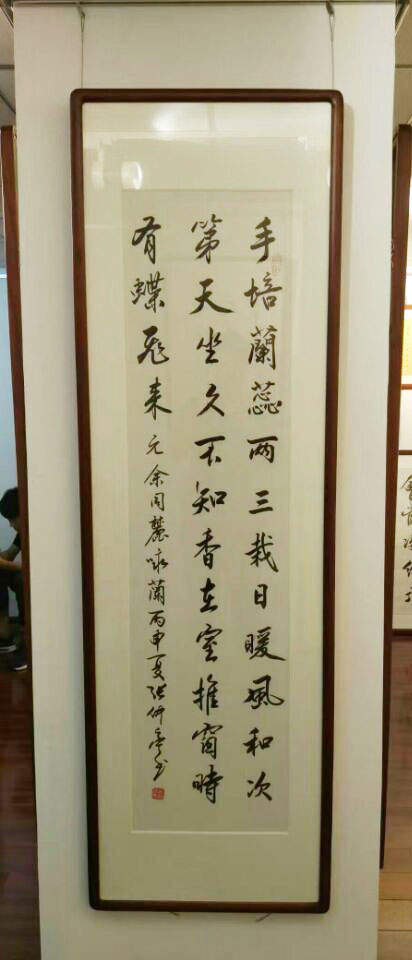 手培蘭蕊两三栽日暖風和次
第天坐久不知香在室推窗時
有蝶飛来元余同麓咏蘭丙申夏张书